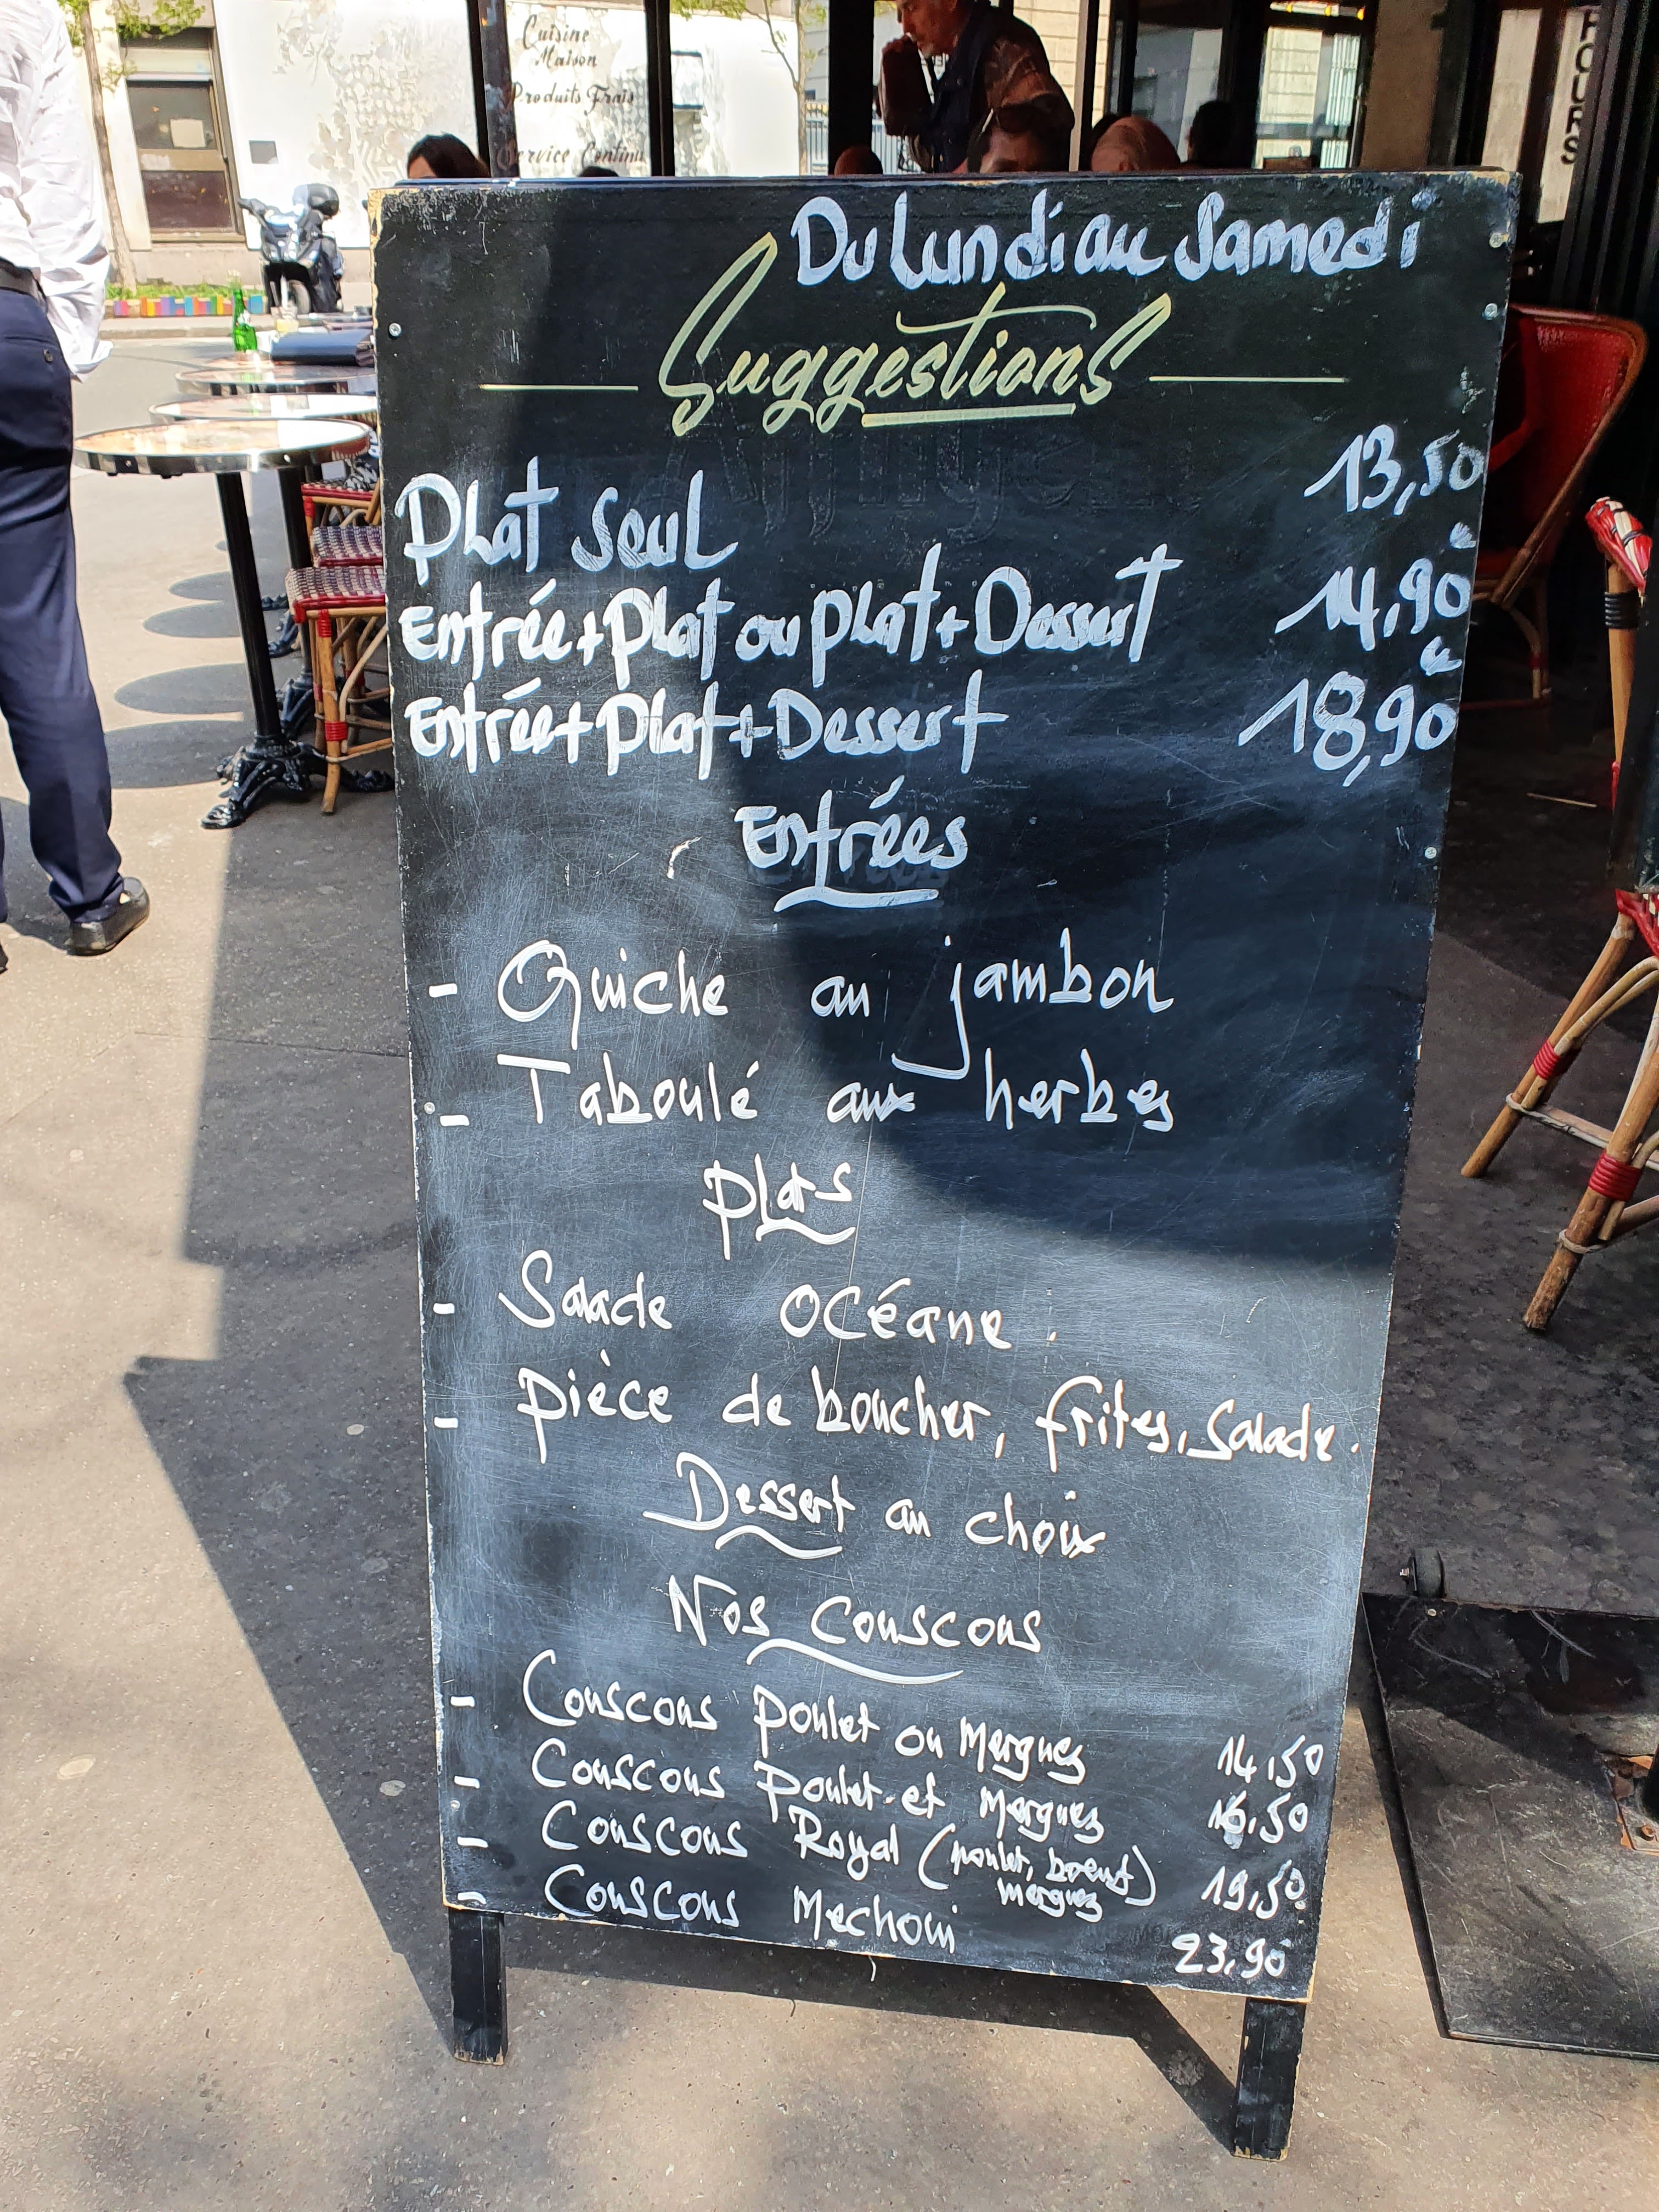 Cuisine
Maison
Produits Frais
Service Continu
HOURS
Du Lundi au Samedi
Suggestions
Plat seul 13,50
Entrée+Plat ou plat+Dessert 14,90
Entrée+Plat+Dessert 18,90
Entrées
- Quiche au jambon
- Taboulé aux herbes
Plats
- Salade océane.
- pièce de boucher, frites, salade.
Dessert au choix
Nos couscous
- Couscous poulet ou Mergues 14,50
- Couscous poulet et Merguez 16,50
- Couscous Royal (poulet, boeuf, merguez) 19,50
- Couscous Mechoui 23,90